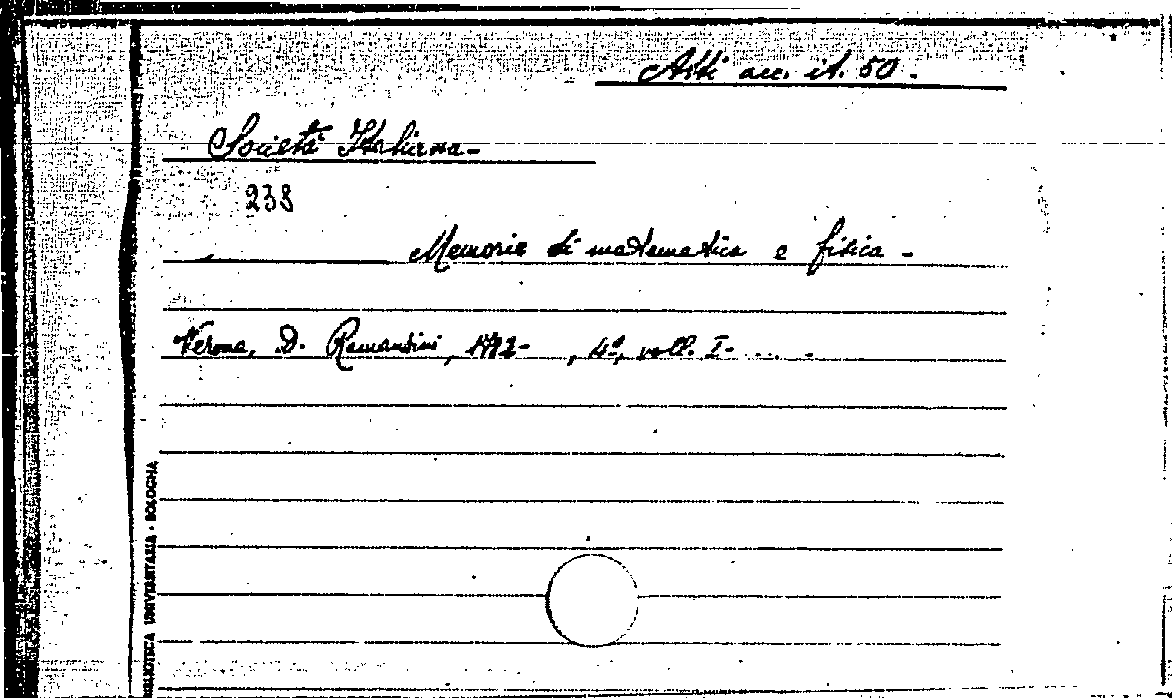 Atti acc. it. 50.
Società Italiana -
238
Memorie di matematica e fisica -
Verona, D. Ramanzini, 1782- , 4°, voll. I- .... -
BIBLIOTECA UNIVERSITARIA - BOLOGNA